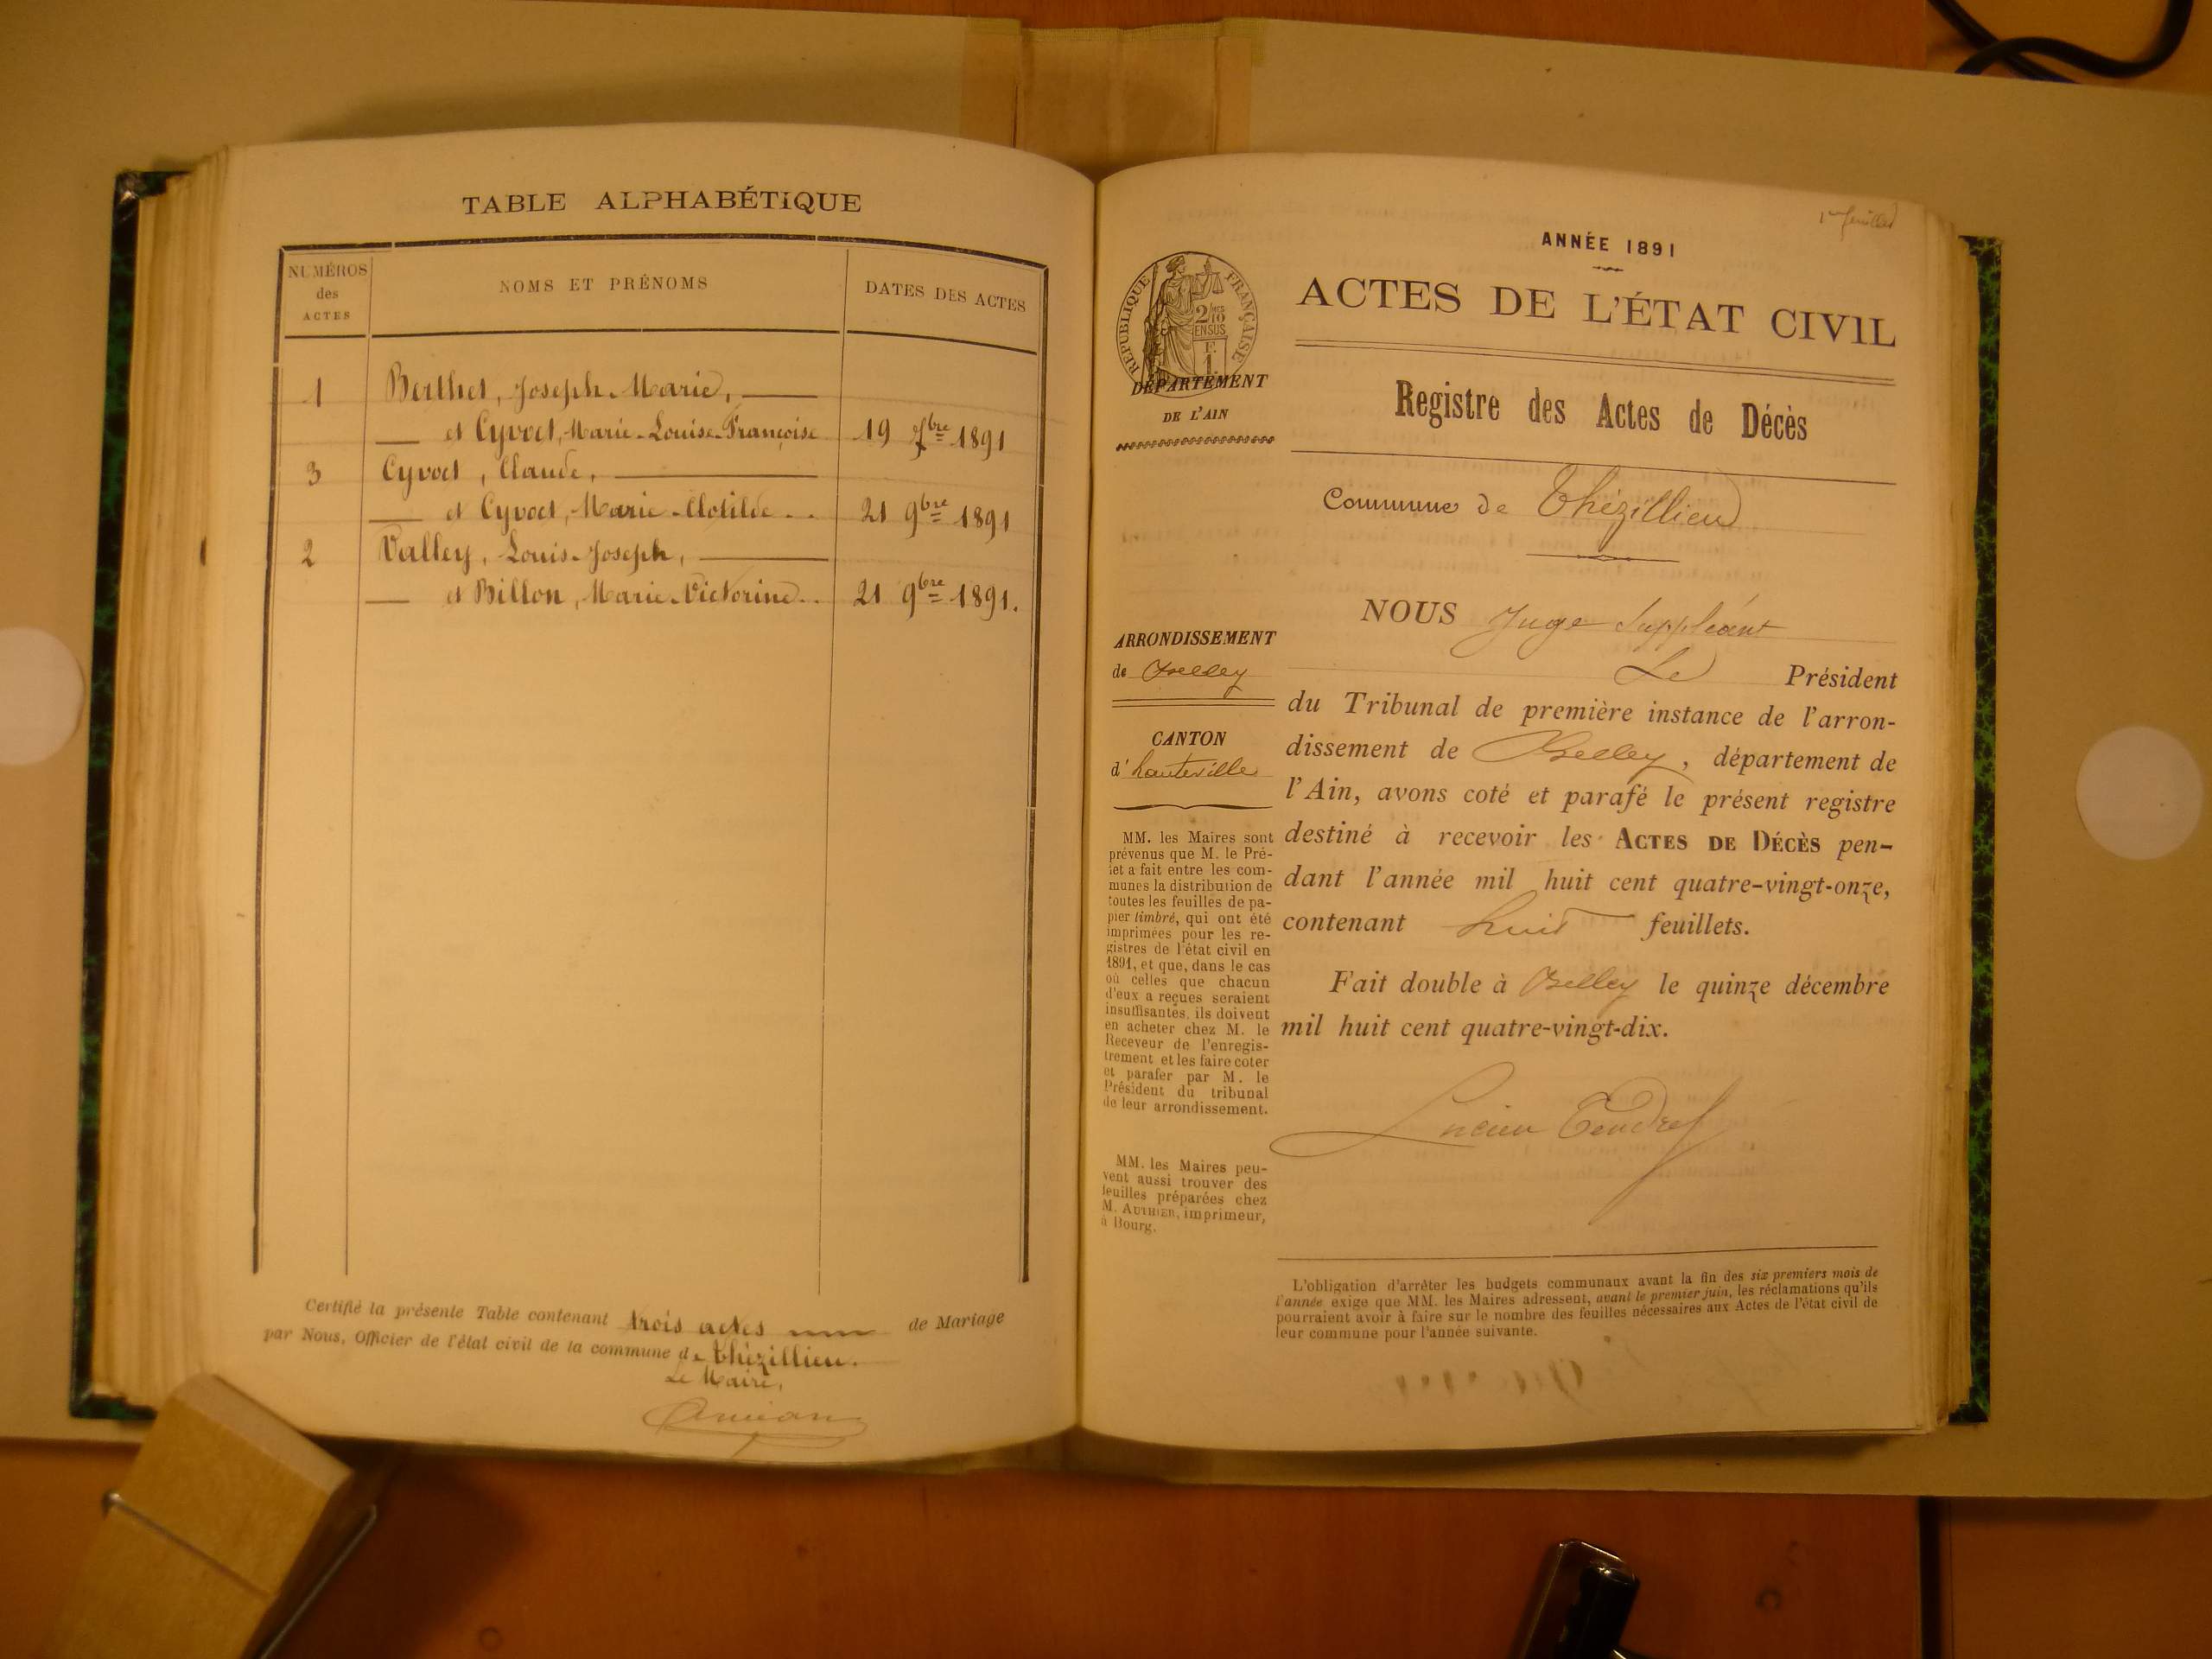 TABLE ALPHABÉTIQUE
NUMÉROS
des
ACTES
NOMS ET PRÉNOMS
DATES DES ACTES
1 Berthet, Joseph-Marie,
et Cyvoct, Marie-Louise-Françoise 19 7bre 1891
3 Cyvoct, Claude,
et Cyvoct, Marie-Clotilde 21 9bre 1891
2 Valley, Louis-Joseph,
et Billon, Marie-Victorine 21 9bre 1891.
Certifié la présente Table contenant trois actes de Mariage
par Nous, Officier de l'état civil de la commune de Thézillieu.
Le Maire,
1er feuillet
ANNÉE 1891
ACTES DE L'ÉTAT CIVIL
Registre des Actes de Décès
Commune de Thézillieu
RÉPUBLIQUE FRANÇAISE
2/10
EN SUS
F.
1.
DÉPARTEMENT
DE L'AIN
ARRONDISSEMENT
de Belley
CANTON
d'hauteville
MM. les Maires sont
prévenus que M. le Pré-
fet a fait entre les com-
munes la distribution de
toutes les feuilles de pa-
pier timbré, qui ont été
imprimées pour les re-
gistres de l'état civil en
1891, et que, dans le cas
où celles que chacun
d'eux a reçues seraient
insuffisantes, ils doivent
en acheter chez M. le
Receveur de l'enregis-
trement et les faire coter
et parafer par M. le
Président du tribunal
de leur arrondissement.
MM. les Maires peu-
vent aussi trouver des
feuilles préparées chez
M. AUTHIER, imprimeur,
à Bourg.
NOUS Juge Suppléant
Le Président
du Tribunal de première instance de l'arron-
dissement de Belley, département de
l'Ain, avons coté et parafé le présent registre
destiné à recevoir les ACTES DE DÉCÈS pen-
dant l'année mil huit cent quatre-vingt-onze,
contenant huit feuillets.
Fait double à Belley le quinze décembre
mil huit cent quatre-vingt-dix.
Lucien Tendret
L'obligation d'arrêter les budgets communaux avant la fin des six premiers mois de
l'année exige que MM. les Maires adressent, avant le premier juin, les réclamations qu'ils
pourraient avoir à faire sur le nombre des feuilles nécessaires aux Actes de l'état civil de
leur commune pour l'année suivante.